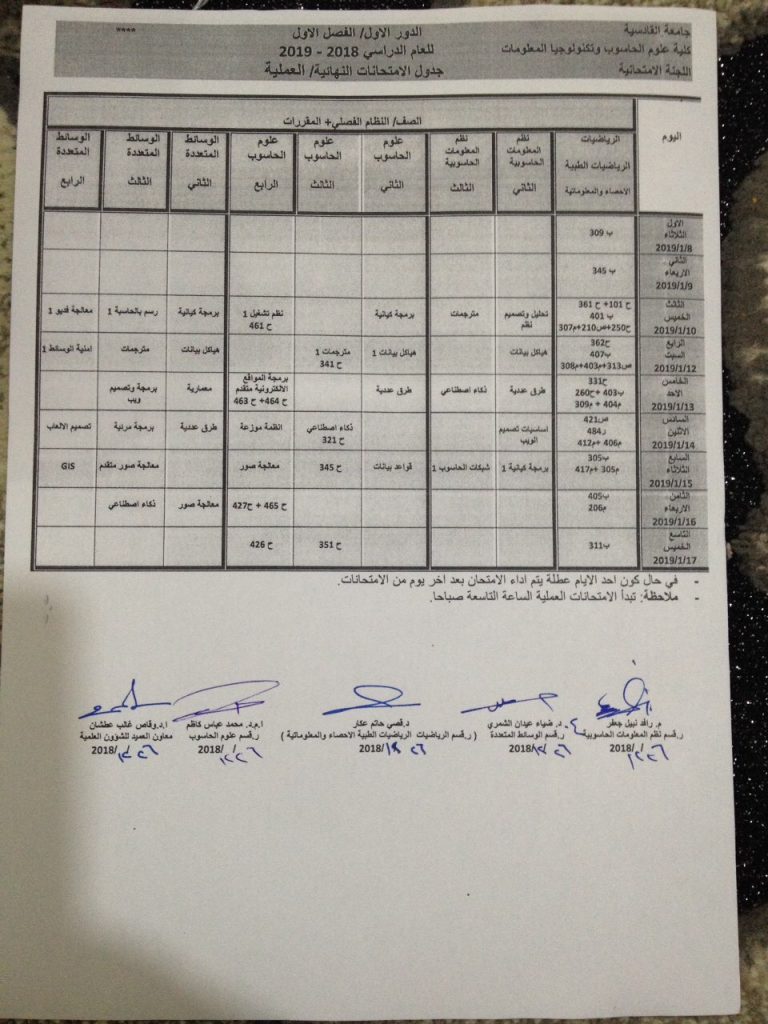 جامعة القادسية
كلية علوم الحاسوب وتكنولوجيا المعلومات
اللجنة الامتحانية
الدور الاول/ الفصل الاول
للعام الدراسي 2018 - 2019
جدول الامتحانات النهائية/ العملية
****
اليوم
الصف/ النظام الفصلي+ المقررات
الرياضيات
الرياضيات الطبية
الاحصاء والمعلوماتية
نظم المعلومات الحاسوبية الثاني
نظم المعلومات الحاسوبية الثالث
علوم الحاسوب الثاني
علوم الحاسوب الثالث
علوم الحاسوب الرابع
الوسائط المتعددة الثاني
الوسائط المتعددة الثالث
الوسائط المتعددة الرابع
الاول الثلاثاء 2019/1/8
ب 309
الثاني الاربعاء 2019/1/9
ب 345
الثالث الخميس 2019/1/10
ح 101+ ح 361
ب 401
ح250+ص210+م307
تحليل وتصميم نظم
مترجمات
برمجة كيانية
نظم تشغيل 1
ح 461
برمجة كيانية
رسم بالحاسبة 1
معالجة فديو 1
الرابع السبت 2019/1/12
ح362
ب407
ص313+م403+م308
هياكل بيانات
هياكل بيانات 1
مترجمات 1
ح 341
هياكل بيانات
مترجمات
امنية الوسائط 1
الخامس الاحد 2019/1/13
ح331
ب403 +ح260
م404 + م309
طرق عددية
ذكاء اصطناعي
طرق عددية
برمجة المواقع الالكترونية متقدم
ح 464+ ح 463
معمارية
برمجة وتصميم ويب
السادس الاثنين 2019/1/14
ص421
ر484
م406 +م412
اساسيات تصميم الويب
ذكاء اصطناعي
ح 321
انظمة موزعة
طرق عددية
برمجة مرئية
تصميم الالعاب
السابع الثلاثاء 2019/1/15
ب305
م305 +م417
برمجة كيانية 1
شبكات الحاسوب 1
قواعد بيانات
ح 345
معالجة صور
معالجة صور متقدم
GIS
الثامن الاربعاء 2019/1/16
ب405
م206
ح 465 + ح427
معالجة صور
ذكاء اصطناعي
التاسع الخميس 2019/1/17
ب311
ح 351
ح 426
- في حال كون احد الايام عطلة يتم اداء الامتحان بعد اخر يوم من الامتحانات.
- ملاحظة: تبدأ الامتحانات العملية الساعة التاسعة صباحا.
م. رافد نبيل جعفر
ر.قسم نظم المعلومات الحاسوبية
2018/ /
د. ضياء عيدان الشمري
ر.قسم الوسائط المتعددة
2018/١٢/٢٦
د.قصي حاتم عكار
( ر.قسم الرياضيات الرياضيات الطبية الاحصاء والمعلوماتية )
2018/١٢/٢٦
ا.م.د. محمد عباس كاظم
ر.قسم علوم الحاسوب
2018/١٢/٢٦
ا.د.وقاص غالب عطشان
معاون العميد للشؤون العلمية
2018/١٢/٢٦